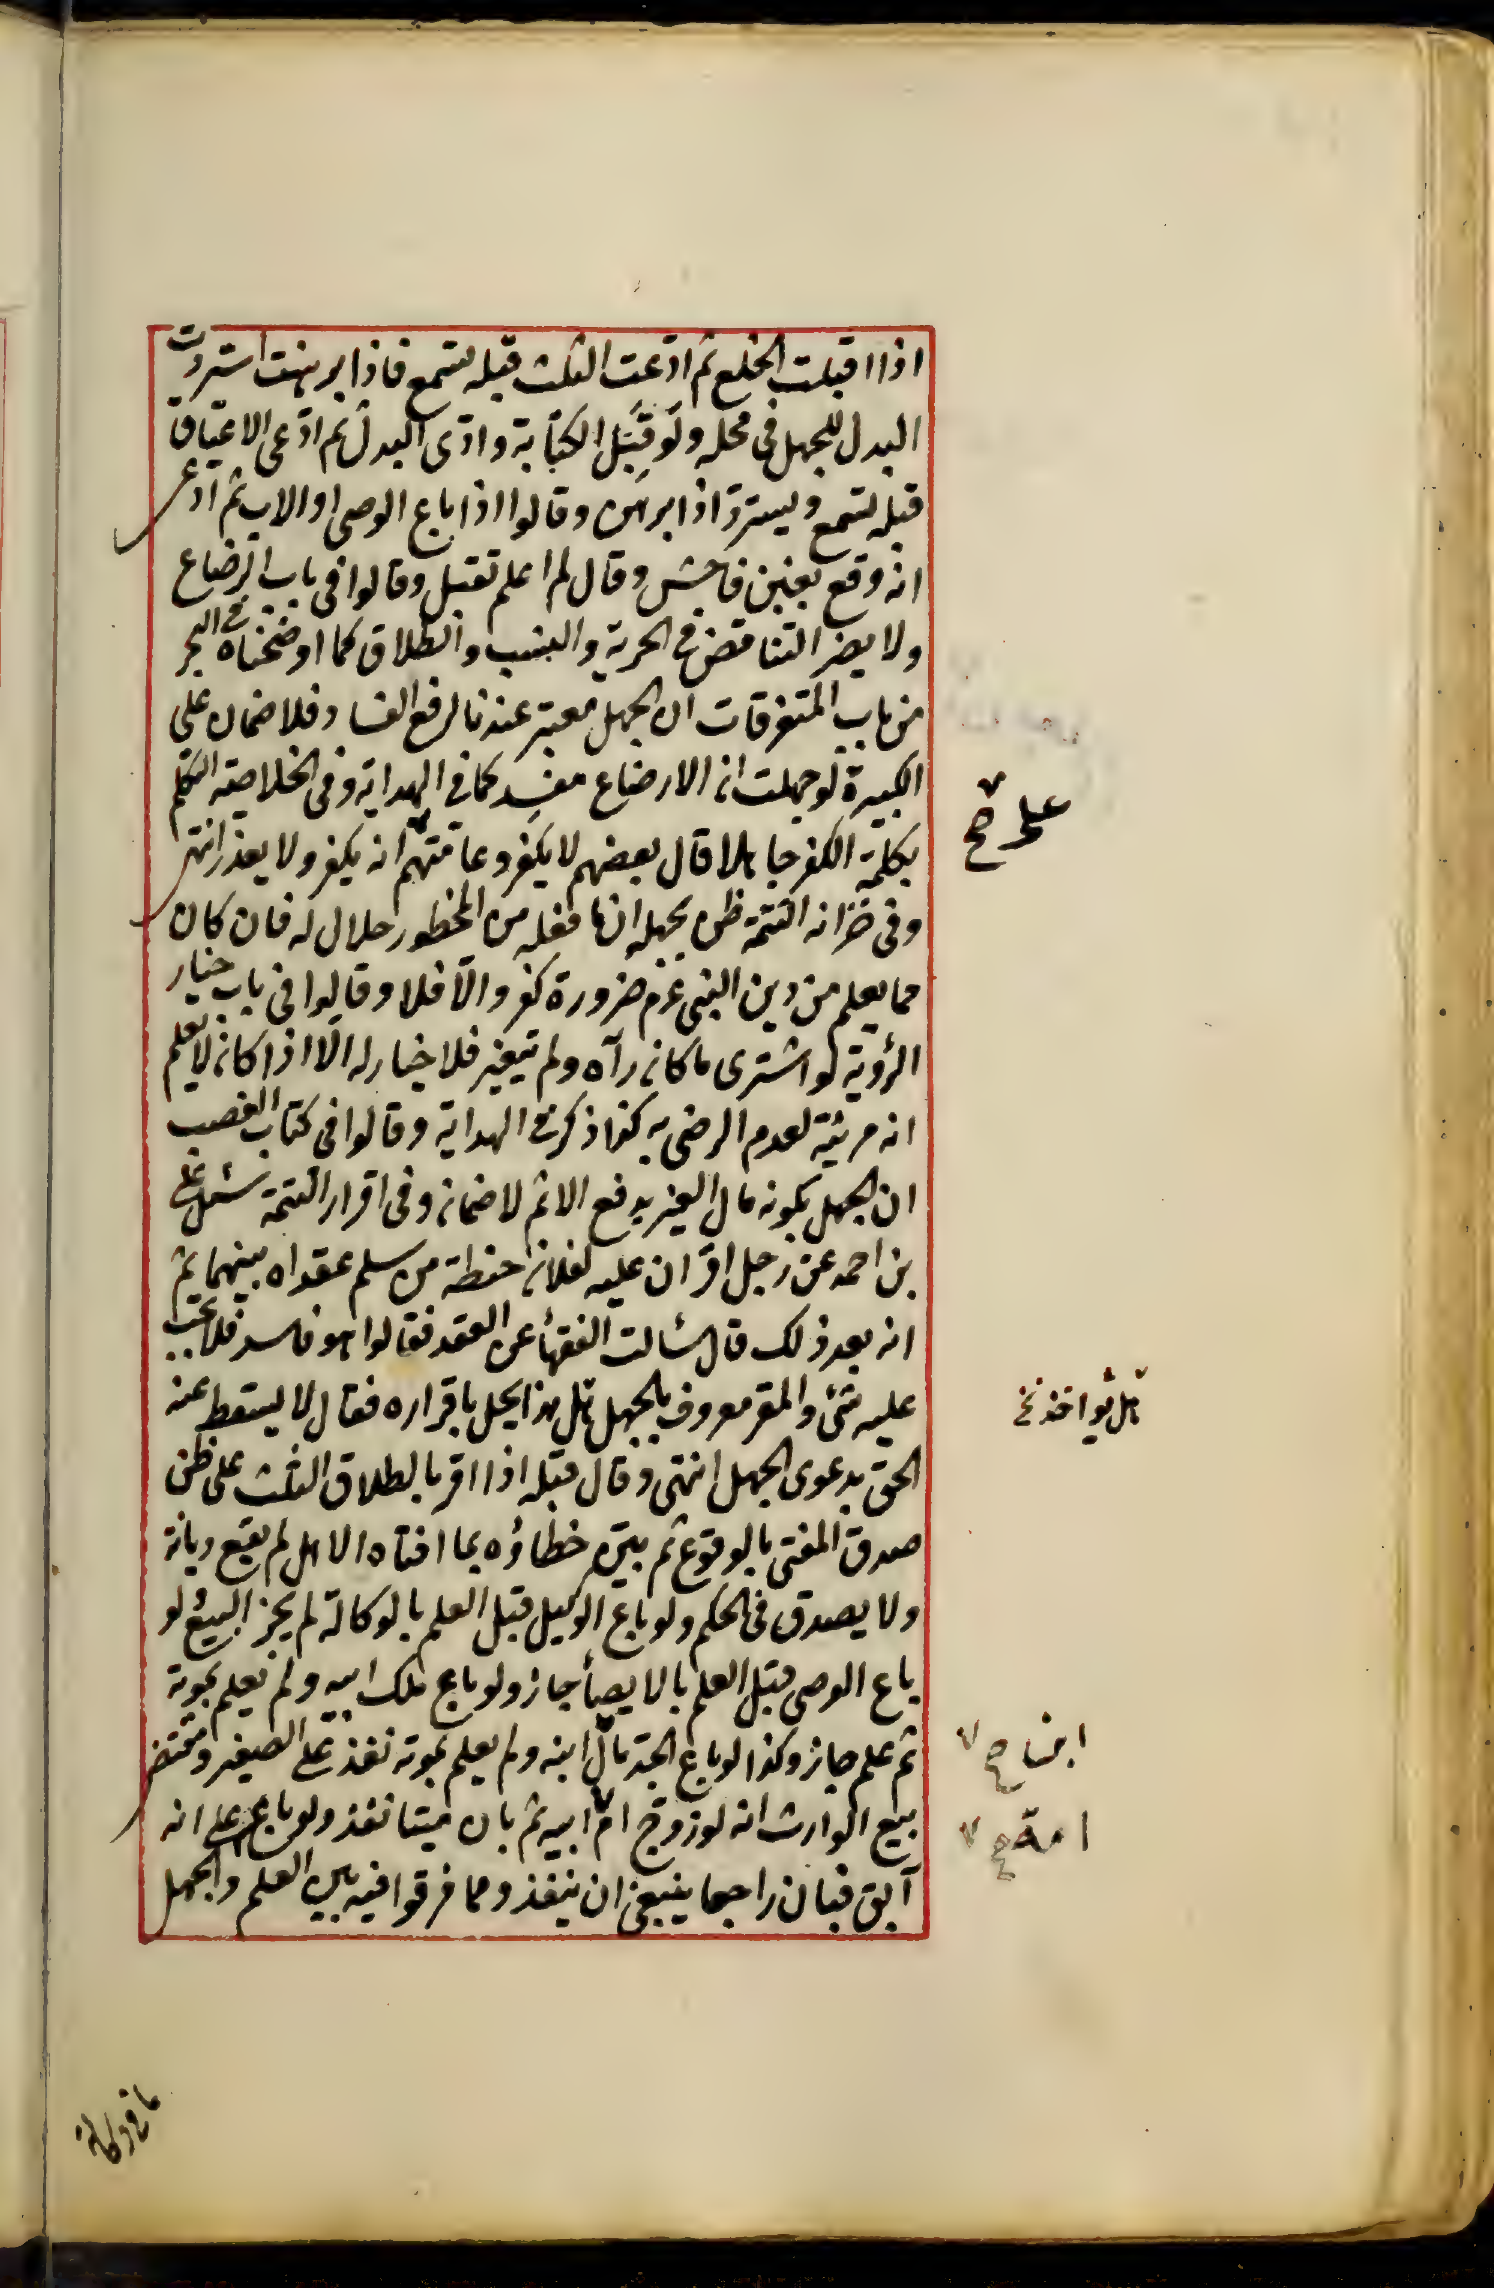 اذا اقبلت الخلع ثم ادّعت الثلث قبله تسمع فاذا برهنت استردت
البدل للجهل فى محله ولو قَبِلَ الكتابة وادّى البدل ثم ادّعى الاعتاق
قبله تسمع ويستردّ اذا برهن وقالوا اذا باع الوصى او الاب ثم ادعى
انه وقع بغبن فاحش وقال لم اعلم تقبل وقالوا فى باب الرضاع
ولا يضر التناقض فى الحرية والنسب والطلاق كما اوضحناه فى البحر
من باب المتفرقات ان الجهل معتبر عندنا لرفع الفساد فلا ضمان على
الكبيرة لو جهلت ان الارضاع مفسد كما فى الهداية وفى الخلاصة التكلم
بكلمة الكفر جاهلا قال بعضهم لا يكفر وعامّتهم انه يكفر ولا يعذر انتهى
وفى خزانه التتمة ظن بجهله ان ما فعله من المحظور حلال له فان كان
مما يعلم من دين النبى عم ضرورة كفر والّا فلا وقالوا فى باب خيار
الرؤية لو اشترى ما كان رآه ولم يتغير فلا خيار له الّا اذا كان لا يعلم
انه مرئية لعدم الرضى به كذا ذكر فى الهداية وقالوا فى كتاب الغصب
ان الجهل بكونه مال الغير يدفع الاثم لا ضمان وفى اقرار التتمة سئل على
بن احمد عن رجل اقرّ ان عليه لفلان حنطة من سلم عقداه بينهما ثم
انه بعد ذلك قال سئالت الفقهأ عن العقد فقالوا هو فاسد فلا يجب
عليه شئ والمقر معروف بالجهل هل هذا يحل باقراره فقال لا يسقط عنه
الحق بدعوى الجهل انتهى وقال قبله اذا اقر بالطلاق الثلث على ظن
صدق المفتى بالوقوع ثم تبين خطاؤه بما افتاه الاهل لم يقع ديانة
ولا يصدق فى الحكم ولو باع الوكيل قبل العلم بالوكالة لم يجز البيع لو
باع الوصى قبل العلم بالايصأ جاز ولو باع ملك ابيه ولم يعلم بموته
ثم علم جاز وكذا لو باع الجد مال ابنه ولم يعلم بموته نفذ على الصغير ومقتضى
بيع الوارث انه لو زوّج امّ ابيه ثم بان ميتا نفذ ولو باع على انه
آبق فبان راجعا ينبغى ان ينفذ ومما فرقوا فيه بين العلم والجهل
على صح
هل يؤاخذ نخ
ابن صح
امة صح
ما فى وكالة